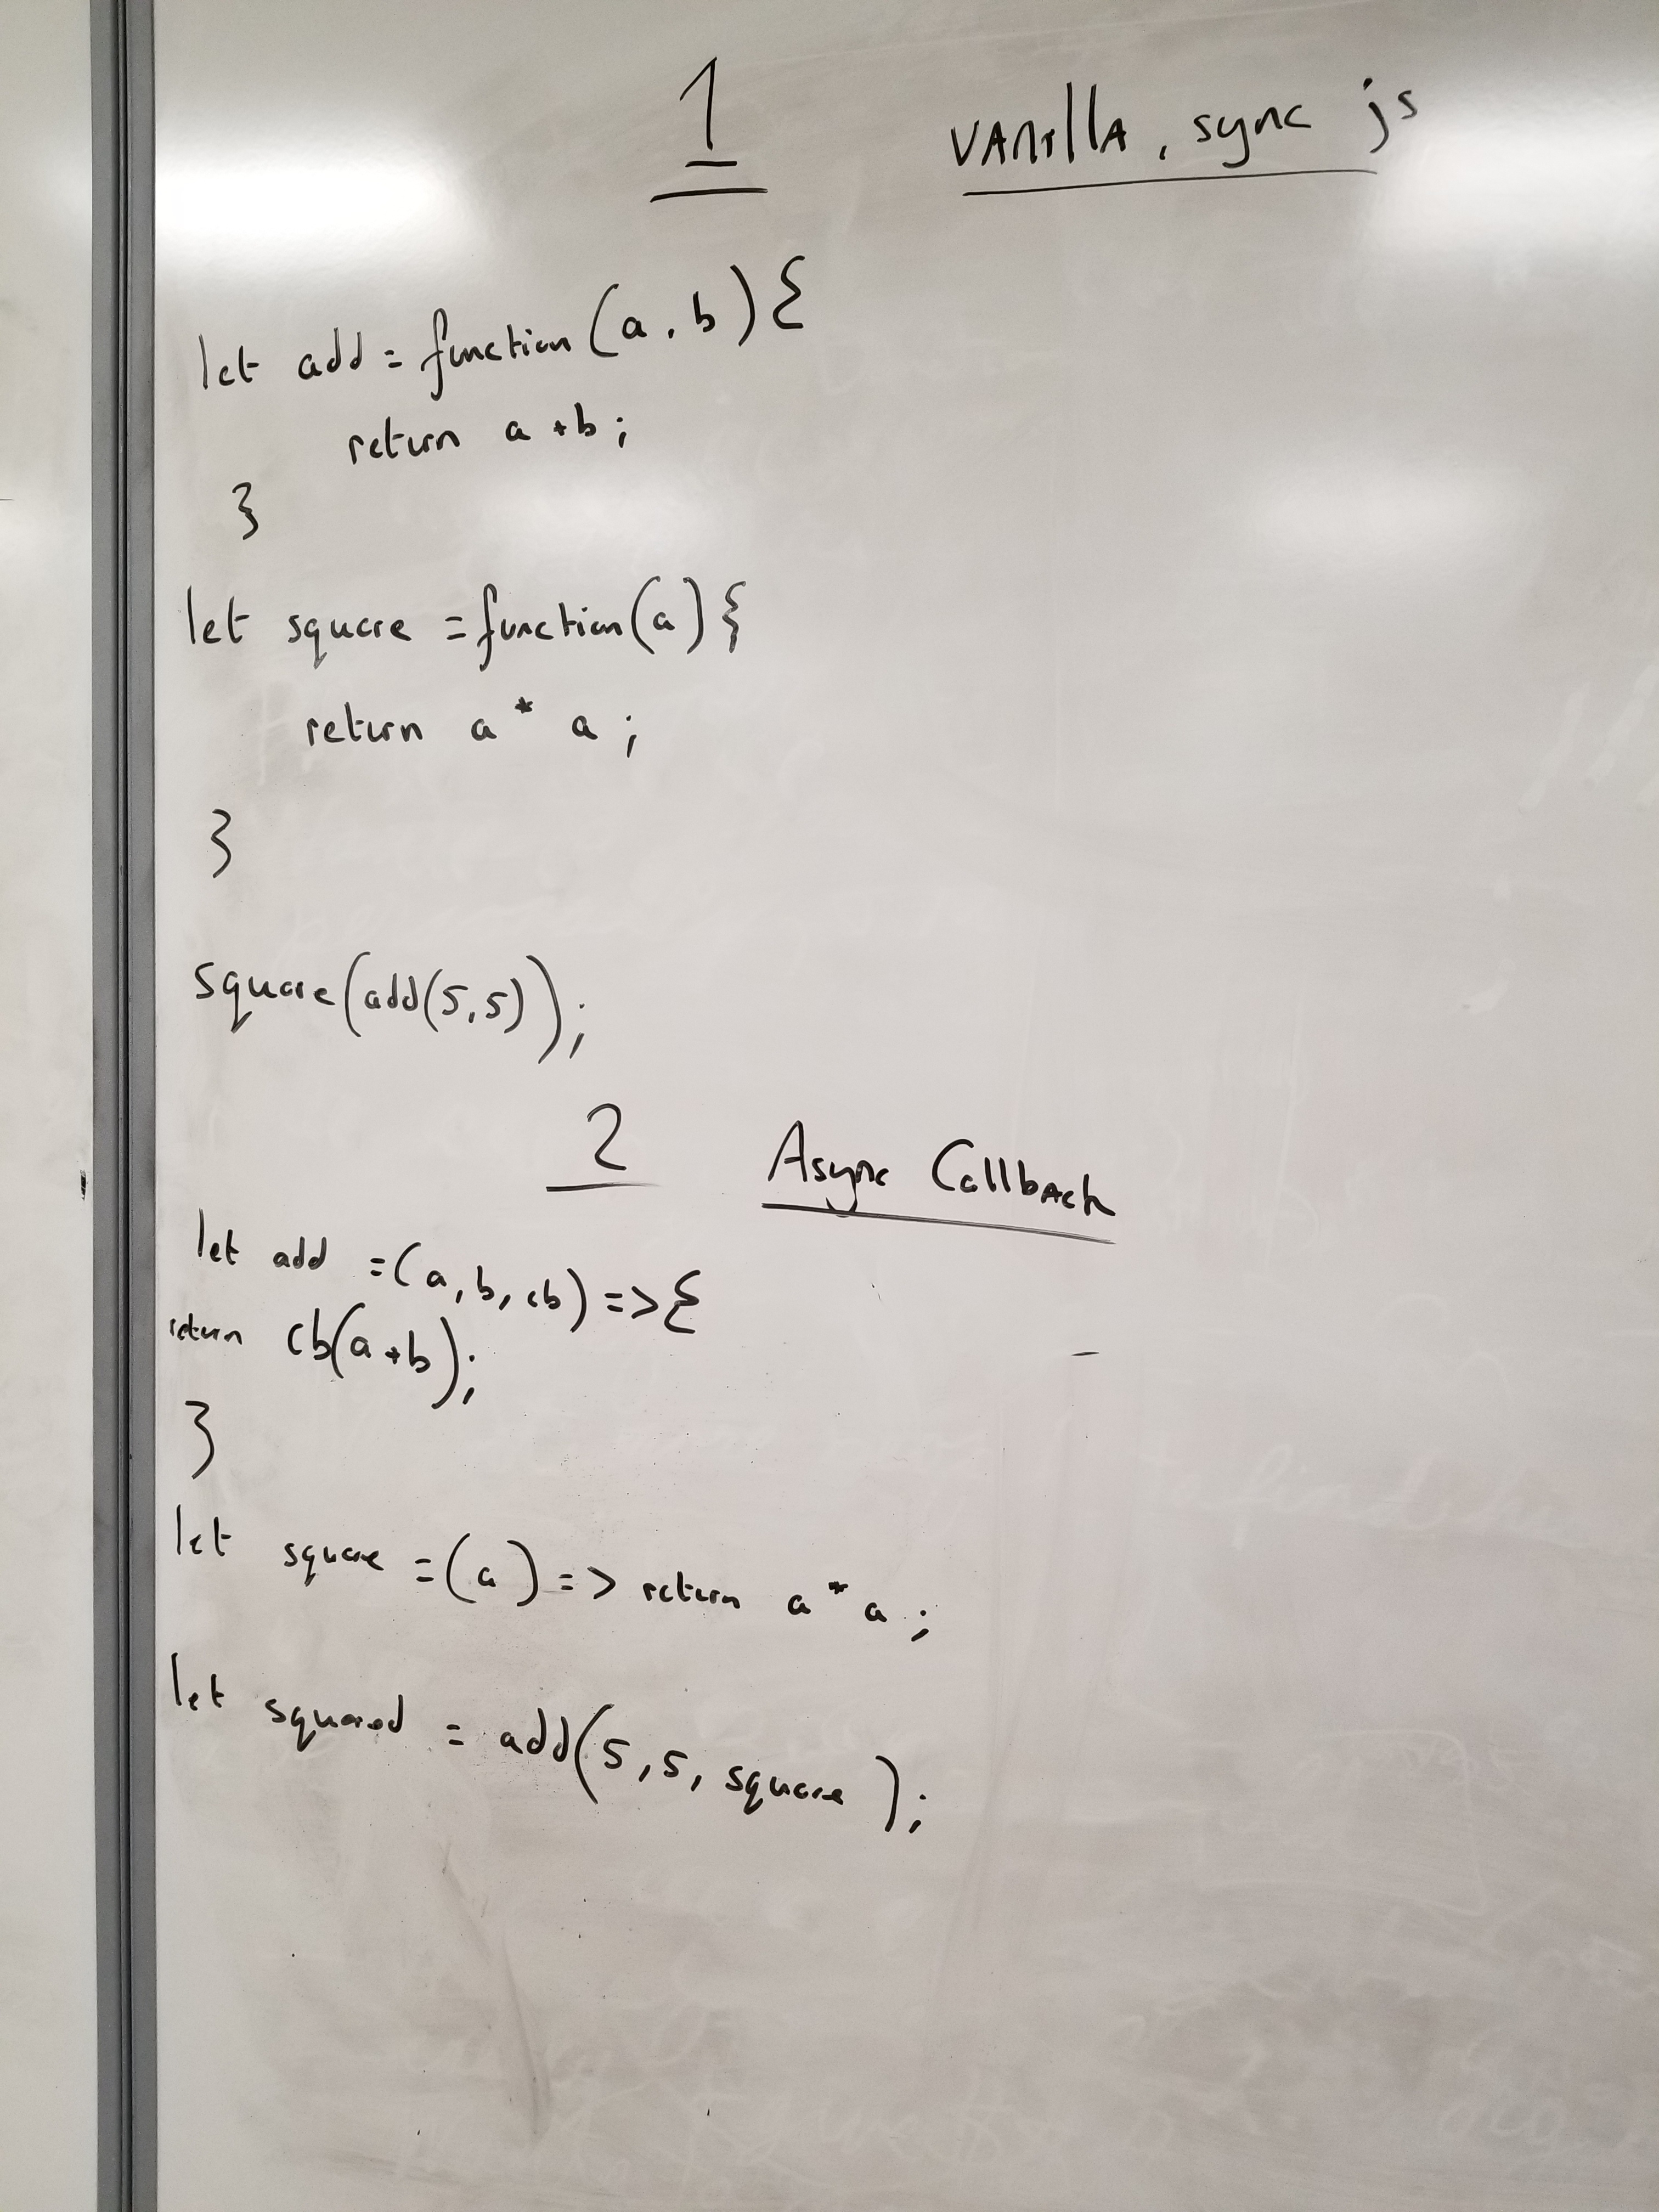 1 VANILLA, sync js
let add = function(a, b) {
return a + b;
}
let square = function(a) {
return a * a;
}
square(add(5,5));
2 Async Callback
let add = (a, b, cb) => {
return cb(a+b);
}
let square = (a) => return a * a;
let squared = add(5,5, square);